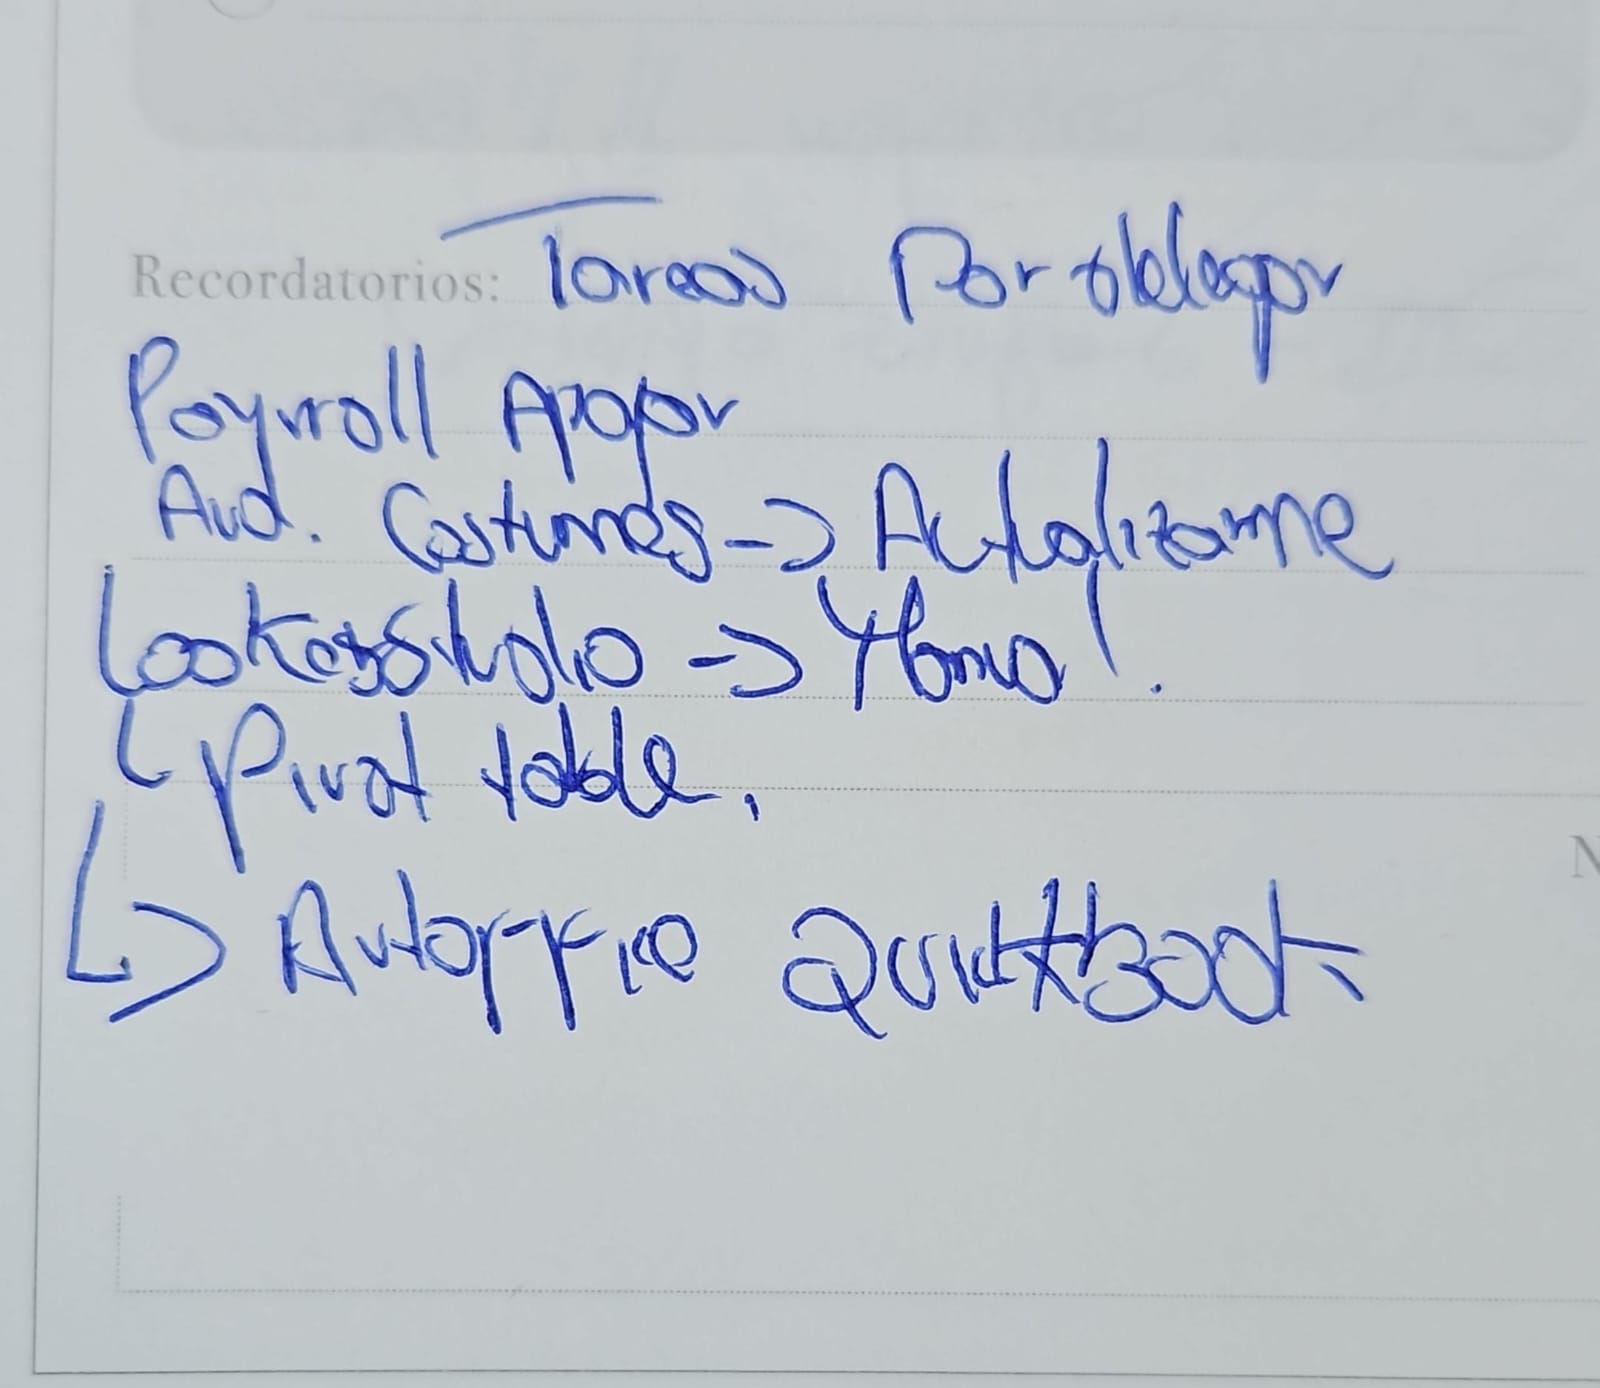 Recordatorios: Tareas Por delegar
Payroll Apogor
Aud. Costumes -> Actualizarme
Looker Studio -> !
Pivot table.
N
-> Autoffice Quickbook